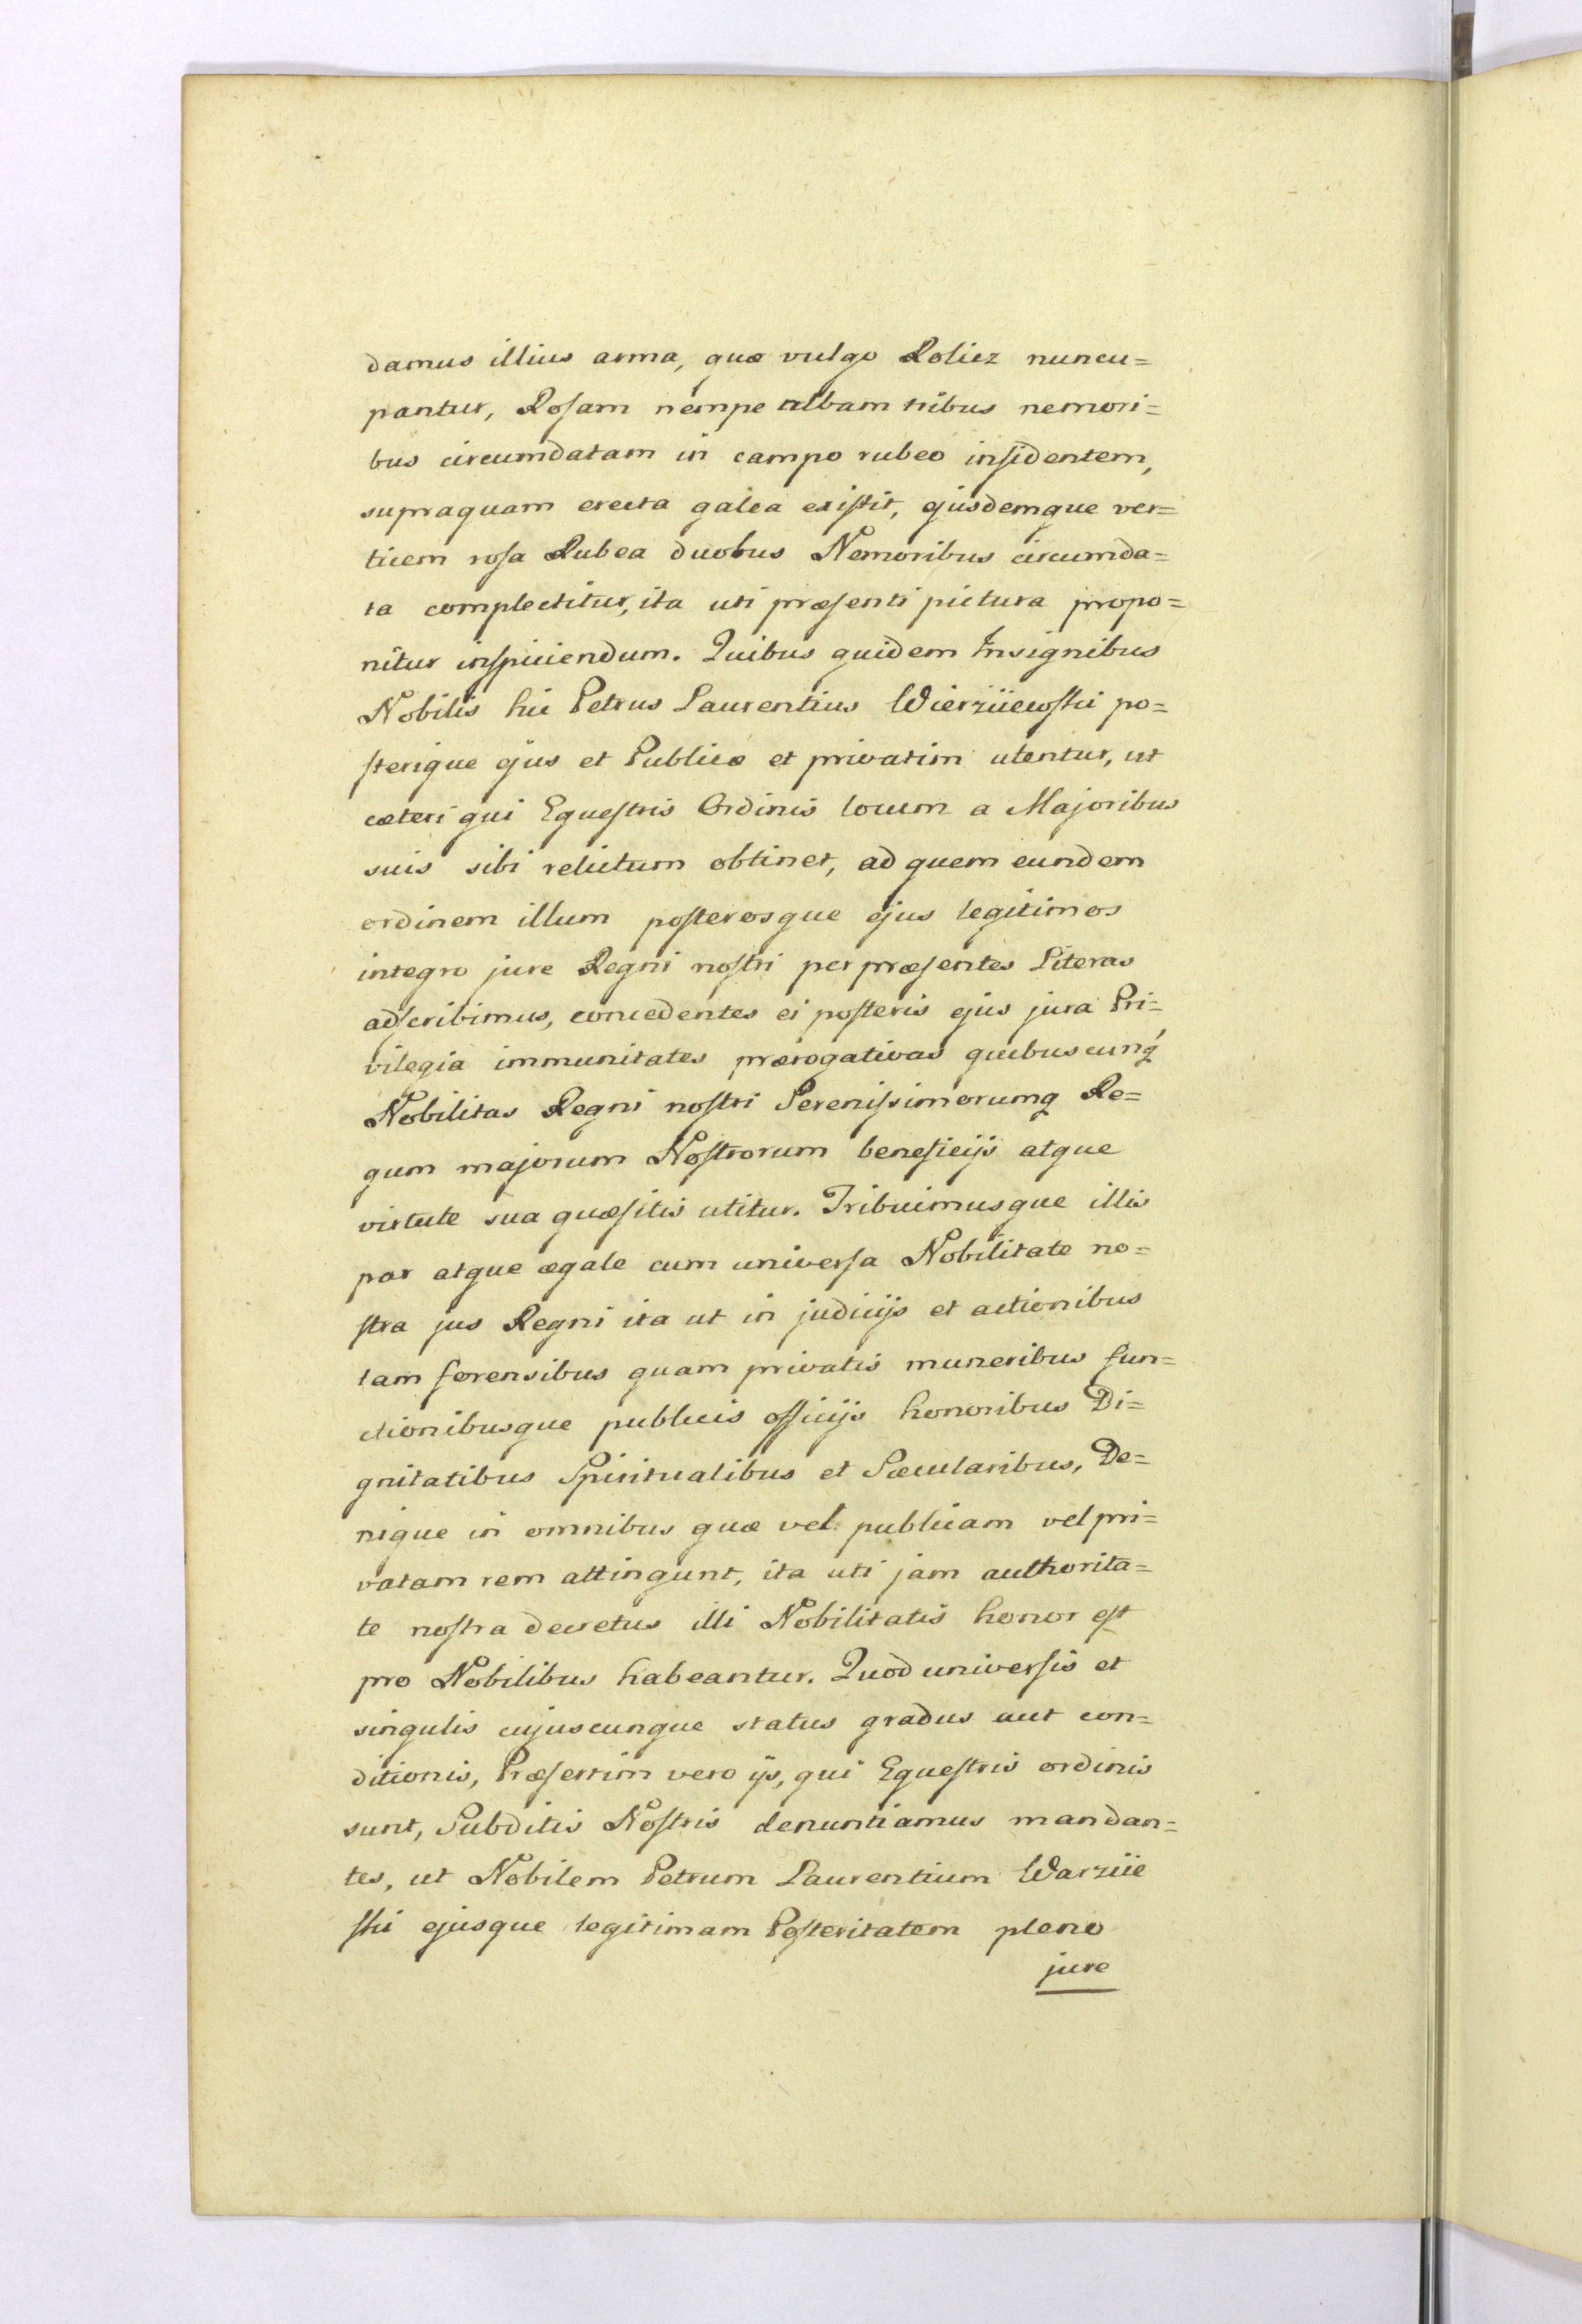 damus illius arma, quæ vulgo Rolicz nuncu=
pantur, Rosam nempe albam tribus nemori=
bus circumdatam in campo rubeo insidentem,
supraquam erecta galea existit, ejusdemque ver=
ticem rosa Rubea duobus Nemoribus circumda=
ta complectitur, ita uti præsenti pictura propo=
nitur inspiciendum. Quibus quidem Insignibus
Nobilis hic Petrus Laurentius Wierzciewski po=
sterique ejus et Publice et privatim utentur, ut
cæteri qui Equestris Ordinis locum a Majoribus
suis sibi relictum obtinet, ad quem eundem
ordinem illum posterosque ejus legitimos
integro jure Regni nostri per præsentes Literas
adscribimus, concedentes ei posteris ejus jura Pri=
vilegia immunitates prærogativas quibuscunq́
Nobilitas Regni nostri Serenissimorumq Re=
gum majorum Nostrorum beneficijs atque
virtute sua quæsitis utitur. Tribuimusque illis
par atque æqale cum universa Nobilitate no=
stra jus Regni ita ut in judicijs et actionibus
tam forensibus quam privatis muneribus fun=
ctionibusque publicis officijs honoribus Di=
gnitatibus Spiritualibus et Sæcularibus, De=
nique in omnibus quæ vel publicam vel pri=
vatam rem attingunt, ita uti jam authorita=
te nostra decretus illi Nobilitatis honor est
pro Nobilibus habeantur. Quod universis et
singulis cujuscunque status gradus aut con=
ditionis, Præsertim vero ijs, qui Equestris ordinis
sunt, Subditis Nostris denuntiamus mandan=
tes, ut Nobilem Petrum Laurentium Warzcie
ski ejusque legitimam Posteritatem pleno
jure